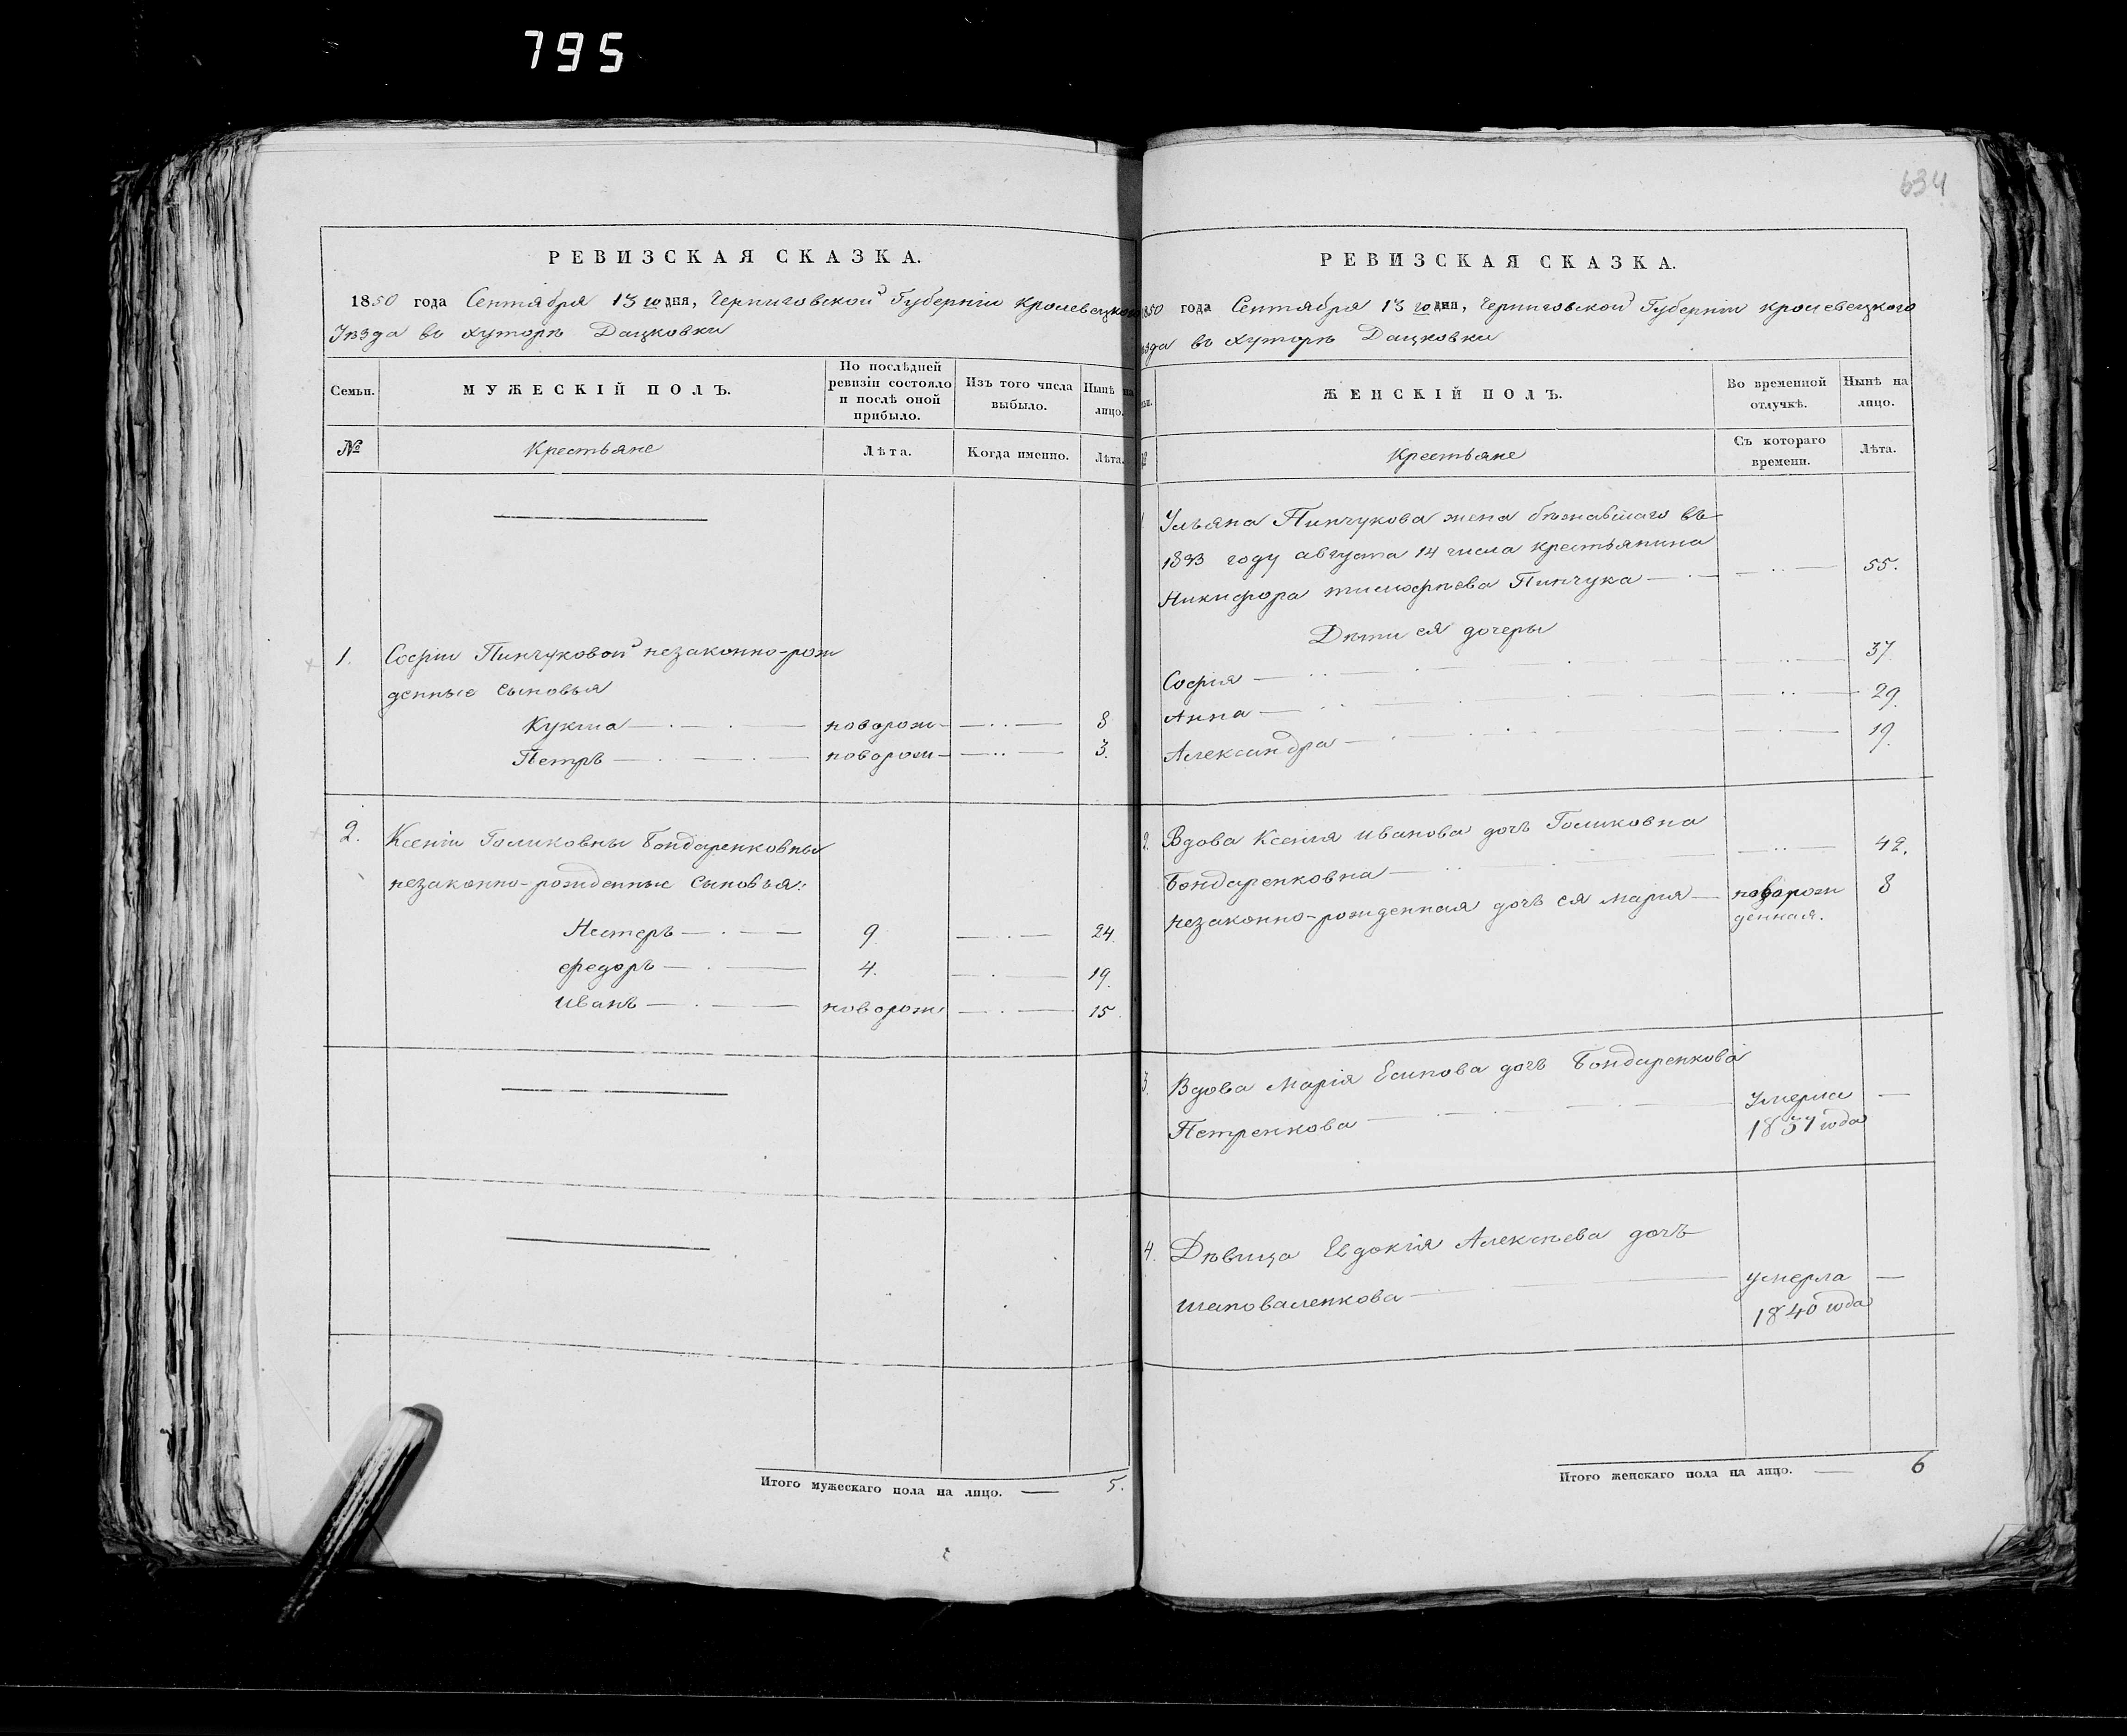 795
РЕВИЗСКАЯ СКАЗКА.
1850 года Сентября 13 го дня, Черниговской Губерніи Кролевецкого
Уѣзда въ Хуторѣ Дацковки
Семьи.
МУЖЕСКІЙ ПОЛЪ.
По послѣдней ревизіи состояло и послѣ оной прибыло.
Изъ того числа выбыло.
Нынѣ на лицо.
№
Крестьяне
Лѣта.
Когда именно.
Лѣта.
1. Софіи Пинчуковой незаконно-рож
денные сыновья
Кузма новорож 8
Петръ новорож 3.
2. Ксеніи Голиковны Бондаренковны
незаконно-рожденные сыновья:
Нестеръ 9 24.
Федоръ 4. 19.
Иванъ новорож 15.
Итого мужескаго пола на лицо. — 5.
634
РЕВИЗСКАЯ СКАЗКА.
850 года Сентября 13 го дня, Черниговской Губерніи Кролевецкого
ѣзда въ Хуторѣ Дацковки
ЖЕНСКІЙ ПОЛЪ.
Во временной отлучкѣ.
Нынѣ на лицо.
Крестьяне
Съ котораго времени.
Лѣта.
Ульяна Пинчукова жена бѣжавшаго въ
году августа 14 числа крестьянина
Никифора тимофѣева Пинчука 55.
Дѣти ея дочеры
София 37.
Анна 29.
Александра 19.
2. Вдова Ксения иванова дочь Голиковна
Бондаренковна 42.
незаконно-рожденная дочь ея мария новорож 8
денная.
3. Вдова Марія Есипова дочь Бондаренкова
Петренкова умерла —
года
4. Дѣвица Евдокія Алексѣева дочь
Шаповаленкова умерла —
1840 года
Итого женскаго пола на лицо. — 6